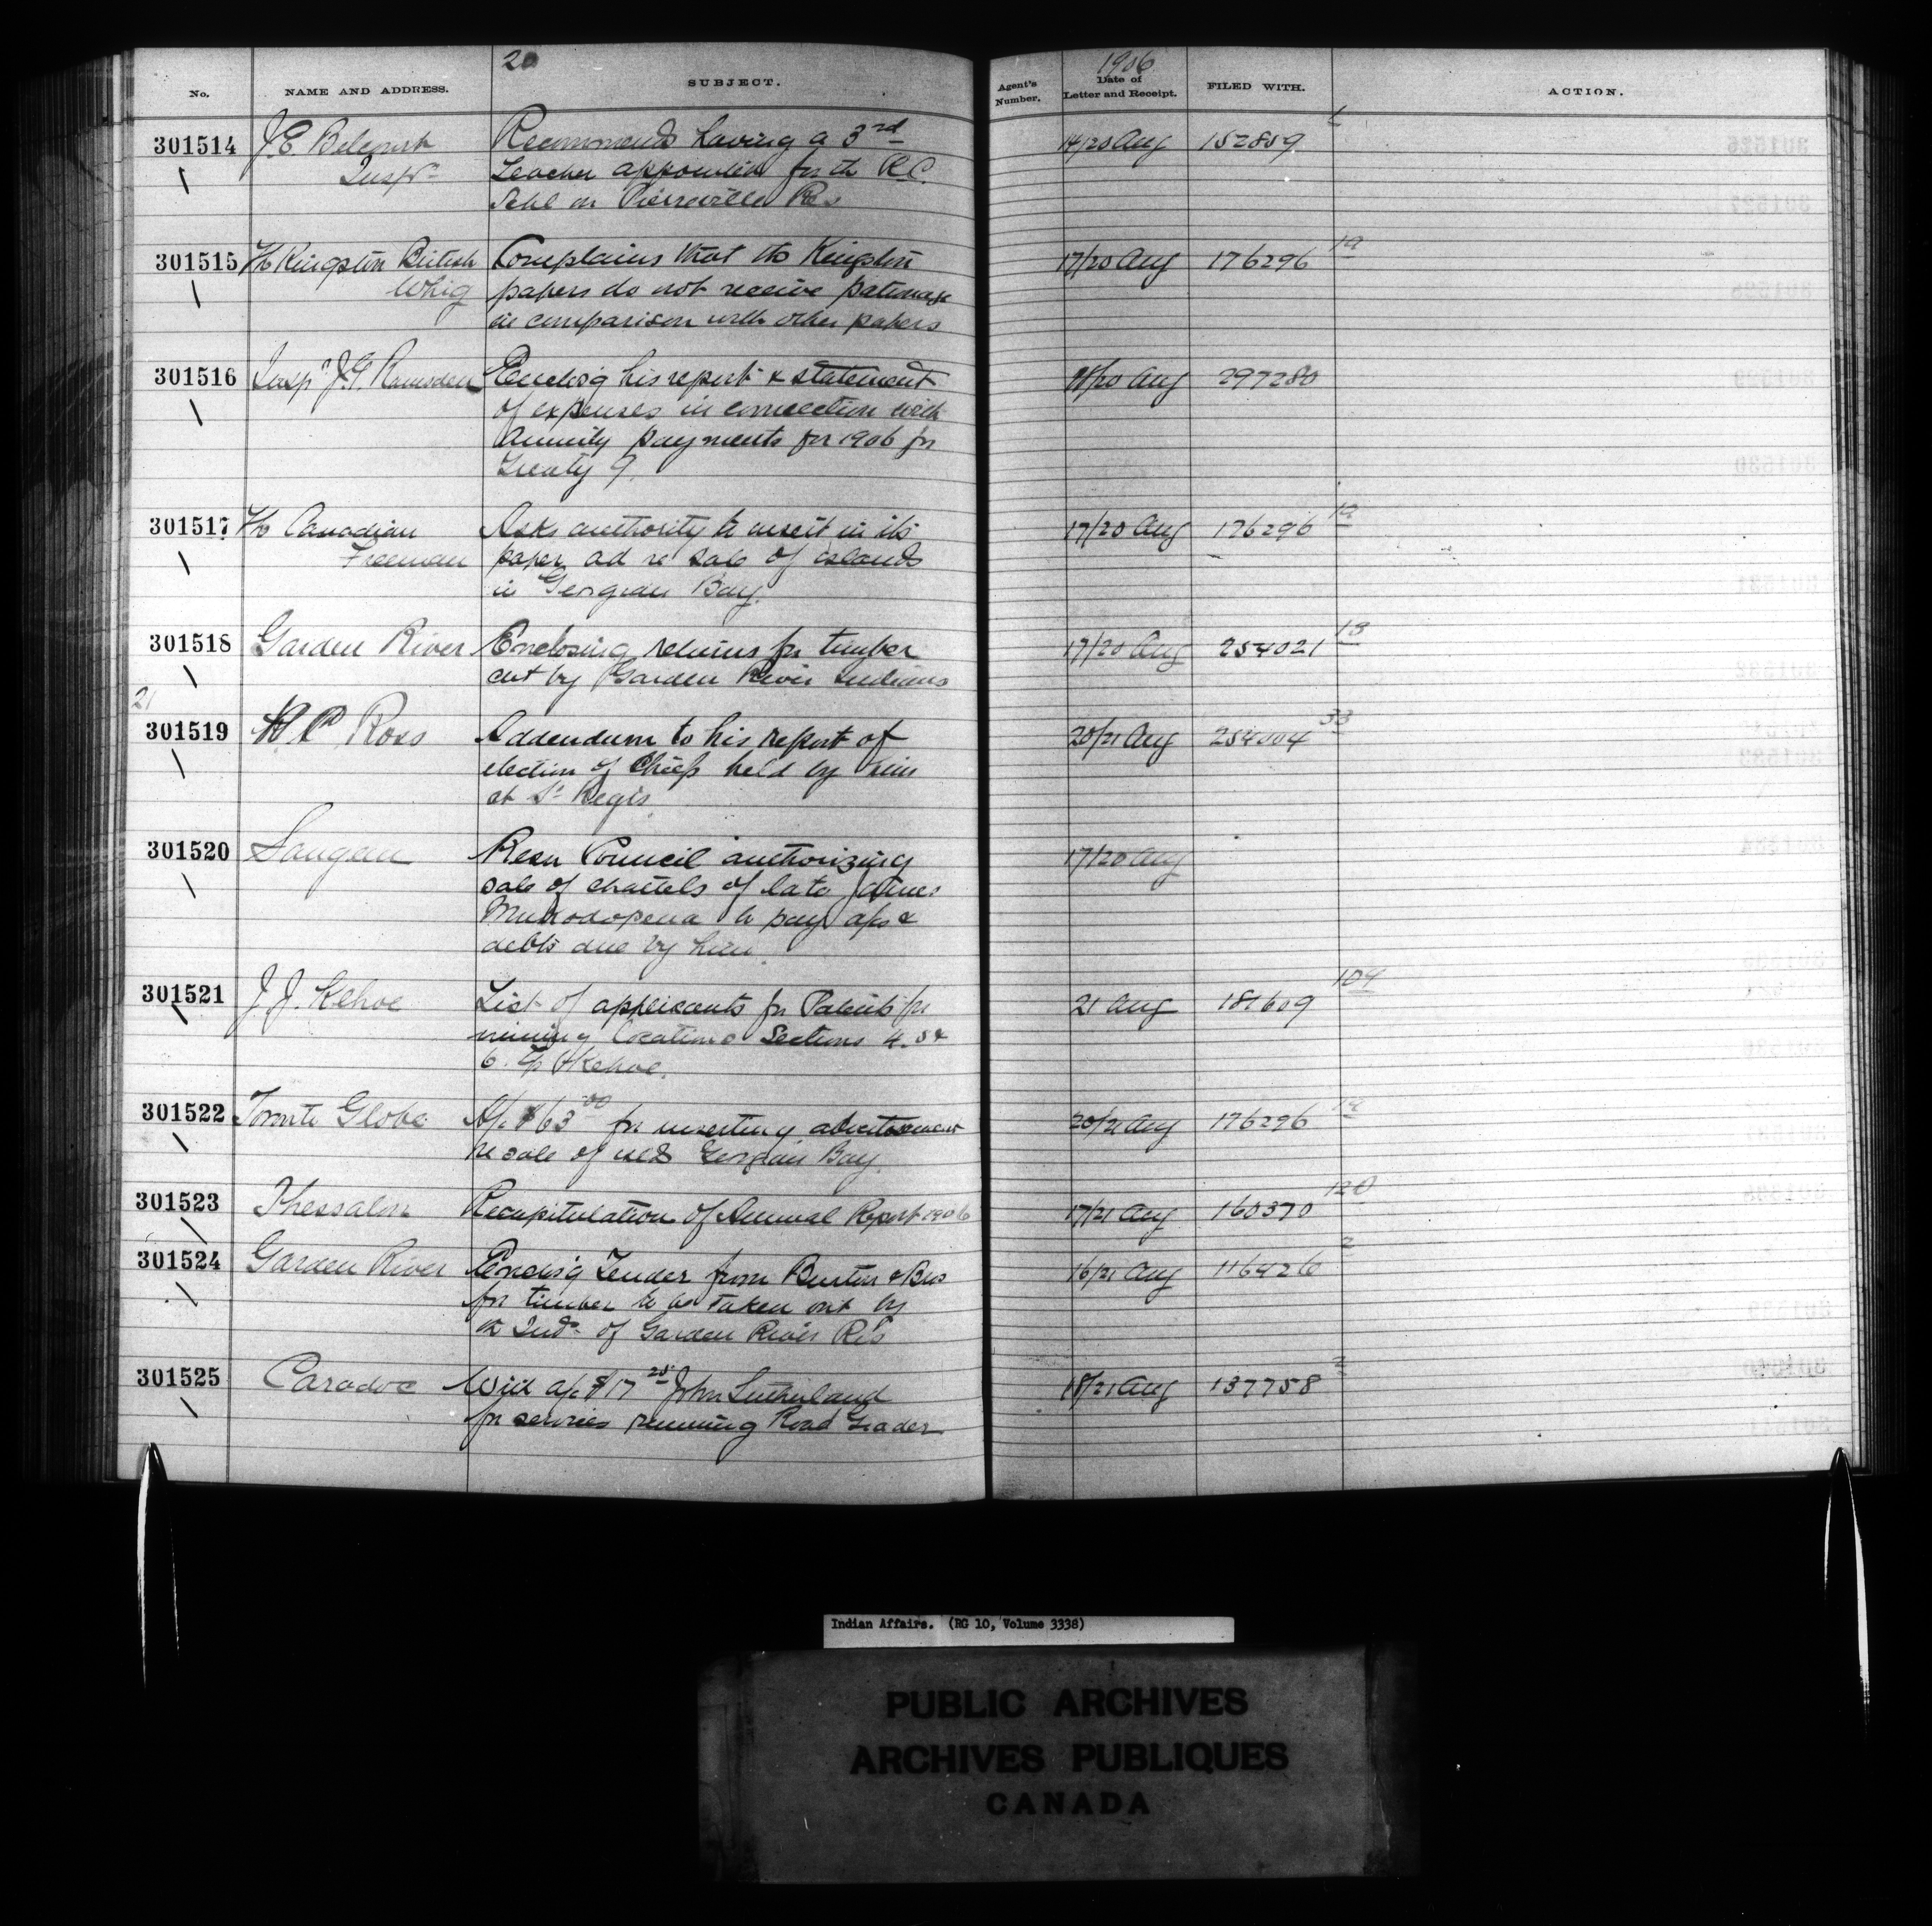 20
1906
No.
NAME AND ADDRESS.
SUBJECT.
Agent's Number.
Date of Letter and Receipt.
FILED WITH.
ACTION.
301514 J. E. Belcourt Recommends having a 3rd 14/20 Aug 152859
Inspr Teacher appointed for the R.C.
Schl on Pierreville Res
301515 The Kingston British Complains that the Kingston 17/20 Aug 176296 19
Whig papers do not receive patronage
in comparison with other papers
301516 Inspr J. G. Ramsden Enclosg his report & statement 18/20 Aug 297280
of expenses in connection with
Annuity payments for 1906 for
Treaty 9.
301517 The Canadian Asks authority to insert in its 17/20 Aug 176296 19
Freeman paper ad re sale of islands
in Georgian Bay.
301518 Garden River Enclosing returns for timber 17/20 Aug 254021 13
cut by Garden River Indians
21
301519 Ross Addendum to his report of 20/21 Aug 254004 33
election of Chiefs held by him
at St Regis
301520 Saugeen Resn Council authorizing 17/20 Aug
sale of chattels of late James
to pay a/cs &
debts due by him.
301521 J. J. Kehoe List of applicants for Patents for 21 Aug 181609 104
mining locations Sections 4. 5 &
6. Tp Kehoe.
301522 Toronto Globe A/c $63.00 for inserting advertisement 20/21 Aug 176296 19
re sale of islds Georgian Bay.
301523 Thessalon Recapitulation of Annual Report 1906 17/21 Aug 160370 120
301524 Garden River Enclosg Tender from Burton & Bros 16/21 Aug 116426 2
for timber to be taken out by
the Inds of Garden River Res
301525 Caradoc a/c $17 John Sutherland 18/21 Aug 137758 2
for services running Road Grader
Indian Affairs. (RG 10, Volume 3338)
PUBLIC ARCHIVES
ARCHIVES PUBLIQUES
CANADA